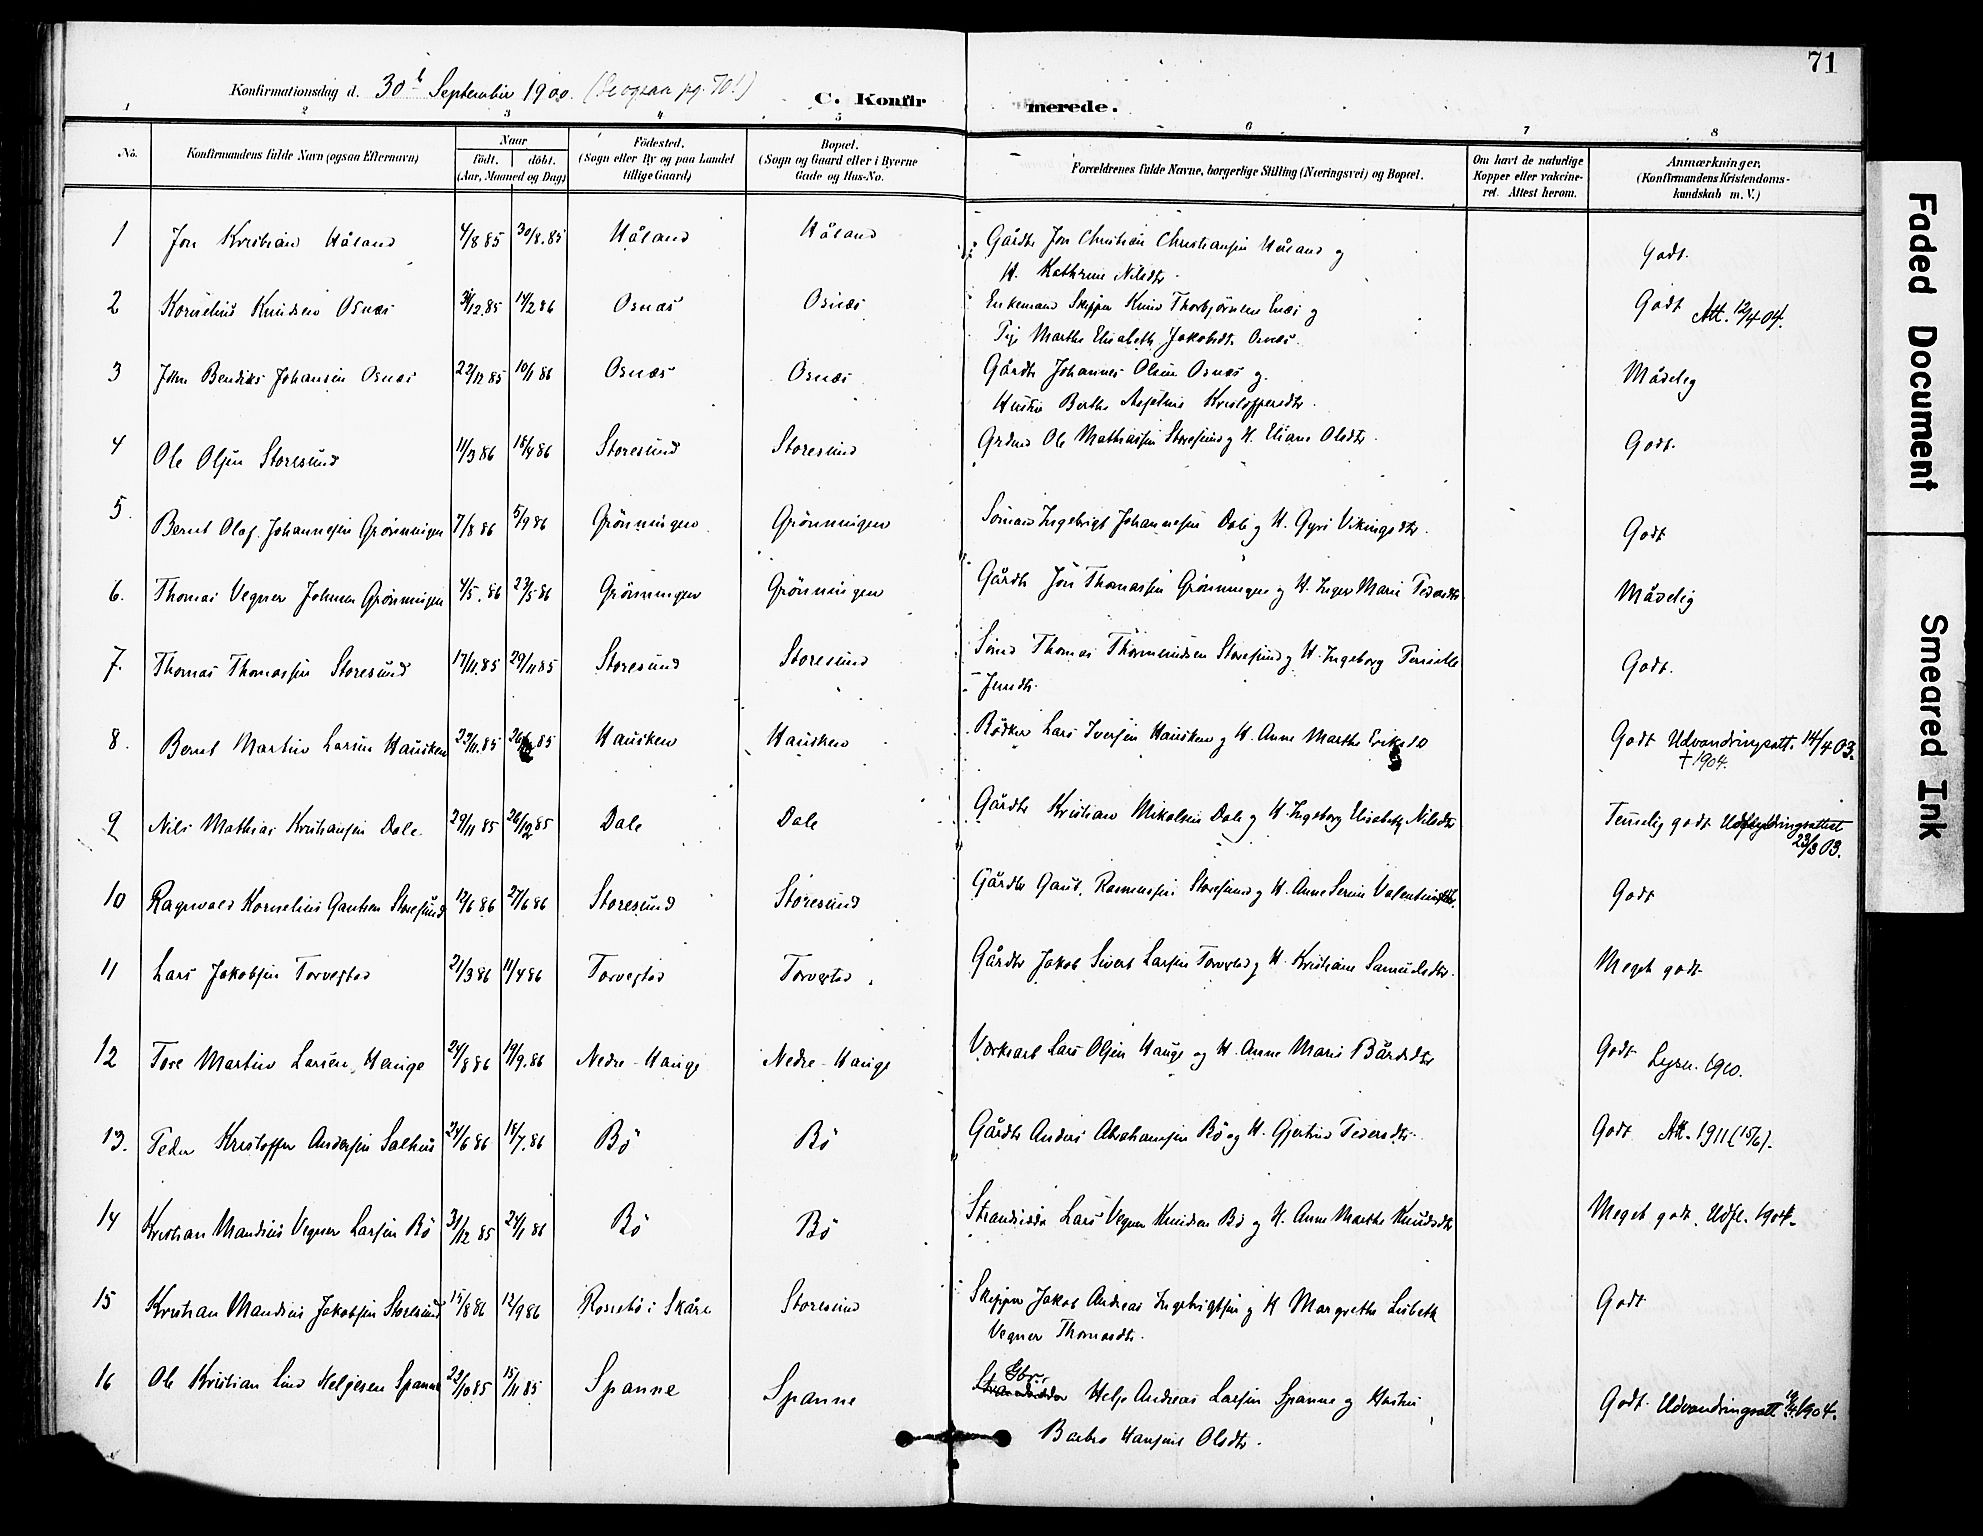 71
Konfirmationsdag d. 30 September 1900. (Se ogsaa pg. 70!) C. Konfirmerede.
1 2 3 4 5 6 7 8
No. Konfirmandens fulde Navn (ogsaa Efternavn) Naar født. døbt. (Aar, Maaned og Dag) Fødested. (Sogn eller By og paa Landet tillige Gaard) Bopæl. (Sogn og Gaard eller i Byerne Gade og Hus-No. Forældrenes fulde Navne, borgerlige Stilling (Næringsvei) og Bopæl. Om havt de naturlige Kopper eller vakcineret. Attest herom. Anmærkninger, (Konfirmandens Kristendomskundskab m. V.)
1 Jon Kristian Håland 4/8 85 30/8.85 Håland Håland Gårdbr Jon Christian Christiansen Håland og Godt.
H. Kathrine Nilsdtr.
2 Kornelius Knudsen Osnæs 31/12.85 14/2 86 Osnæs Osnæs Enkemand Skipper Knud Thorbjørnsen og Godt Att. 12/4 04.
Pige Marthe Elisabeth Jakobsdtr Osnæs.
3 John Bendiks Johansen Osnæs 22/12 85 10/1 86 Osnæs Osnæs Gårdbr Johannes Olsen Osnæs og Mådelig
Hustru Berthe Kristoffersdtr.
4 Ole Olsen Storesund 11/3 86 18/4 86 Storesund Storesund Ole Mathiassen Storesund og H. Eliane Olsdtr. Godt.
5. Bernt Olaf Johannesen Grönningen 7/8 86 5/9 86 Grönningen Grönningen Sömand Ingebrigt Johannesen Dale og H. Gyri Vikingsdtr. Godt
6. Thomas Vegner Johnsen Grönningen 4/5.86 23/5 86 Grönningen Grönningen Gårdbr Jon Thomassen Grönningen og H. Inger Marie Pedersdtr Mådelig
7. Thomas Thomassen Storesund 17/11.85 29/11 85 Storesund Storesund Sömd Thomas Thormundsen Storesund og H. Ingeborg Pernille Godt.
Jensdtr.
8. Bernt Martin Larsen Hausken 23/11.85 85 Hausken Hausken Bödker Lars Iversen Hausken og H. Anne Marthe Godt Udvandringsatt. 14/4 03.
† 1904.
9 Nils Mathias Kristiansen Dale. 29/11 85 26/12 85 Dale Dale Gårdbr Kristian Mikalsen Dale og H. Ingeborg Elisabeth Nilsdtr Temelig godt Udflytningsattest
23/3 03.
10 Ragnvald Kornelius Gautsen Storesund 12/6 86 27/6 86 Storesund Storesund Gårdbr Gaut Rasmussen Storesund og H. Anne Serine Valentinsdtr. Godt
11 Lars Jakobsen Torvestad 21/3 86 11/4 86 Torvestad Torvestad. Gårdbr Jakob Sivert Larsen Torvestad og H. Kristiane Samuelsdtr. Meget godt
12 Tore Martin Larsen Hauge 24/8 86 19/9.86 Nedre-Hauge Nedre-Hauge Lars Olsen Hauge og H. Anne Marie Bårdsdtr Godt Lysn. 1910.
13. Peder Kristoffer Andersen Salhus 24/6 86 18/7.86 Bö Bö Gårdbr Anders Abrahamsen Bö og H. Gjertrud Pedersdtr. Godt Att. 1911 (15/6).
14 Kristian Mandius Vegner Larsen Bö 31/12 85 24/1 86 Bö Bö Strandsidder Lars Vegner Knudsen Bö og H. Anne Marthe Knudsdtr Meget godt. Udfl. 1904.
15 Kristian Mandius Jakobsen Storesund 15/8 86 12/9 86 Rossebö i Skåre Storesund Skipper Jakob Andreas Ingebrigtsen og H Margrethe Lisbeth Godt
Vegner Thomasdtr.
16 Ole Kristian Lind Helgesen Spanne 23/10 85 15/11 85 Spanne Spanne Strandsidder Gbr. Helge Andreas Larsen Spanne og Hustru Godt. Udvandringsatt 1904.
Barbro Hansine Olsdtr.
Faded Document
Smeared Ink